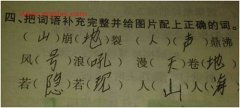 四、把词语补充完整并给图片配上正确的词。
（山）崩（地）裂 （人）（声）鼎沸
风（号）浪（吼） 漫（天）卷（海）
若（隐）若（现） 人（山）人（海）